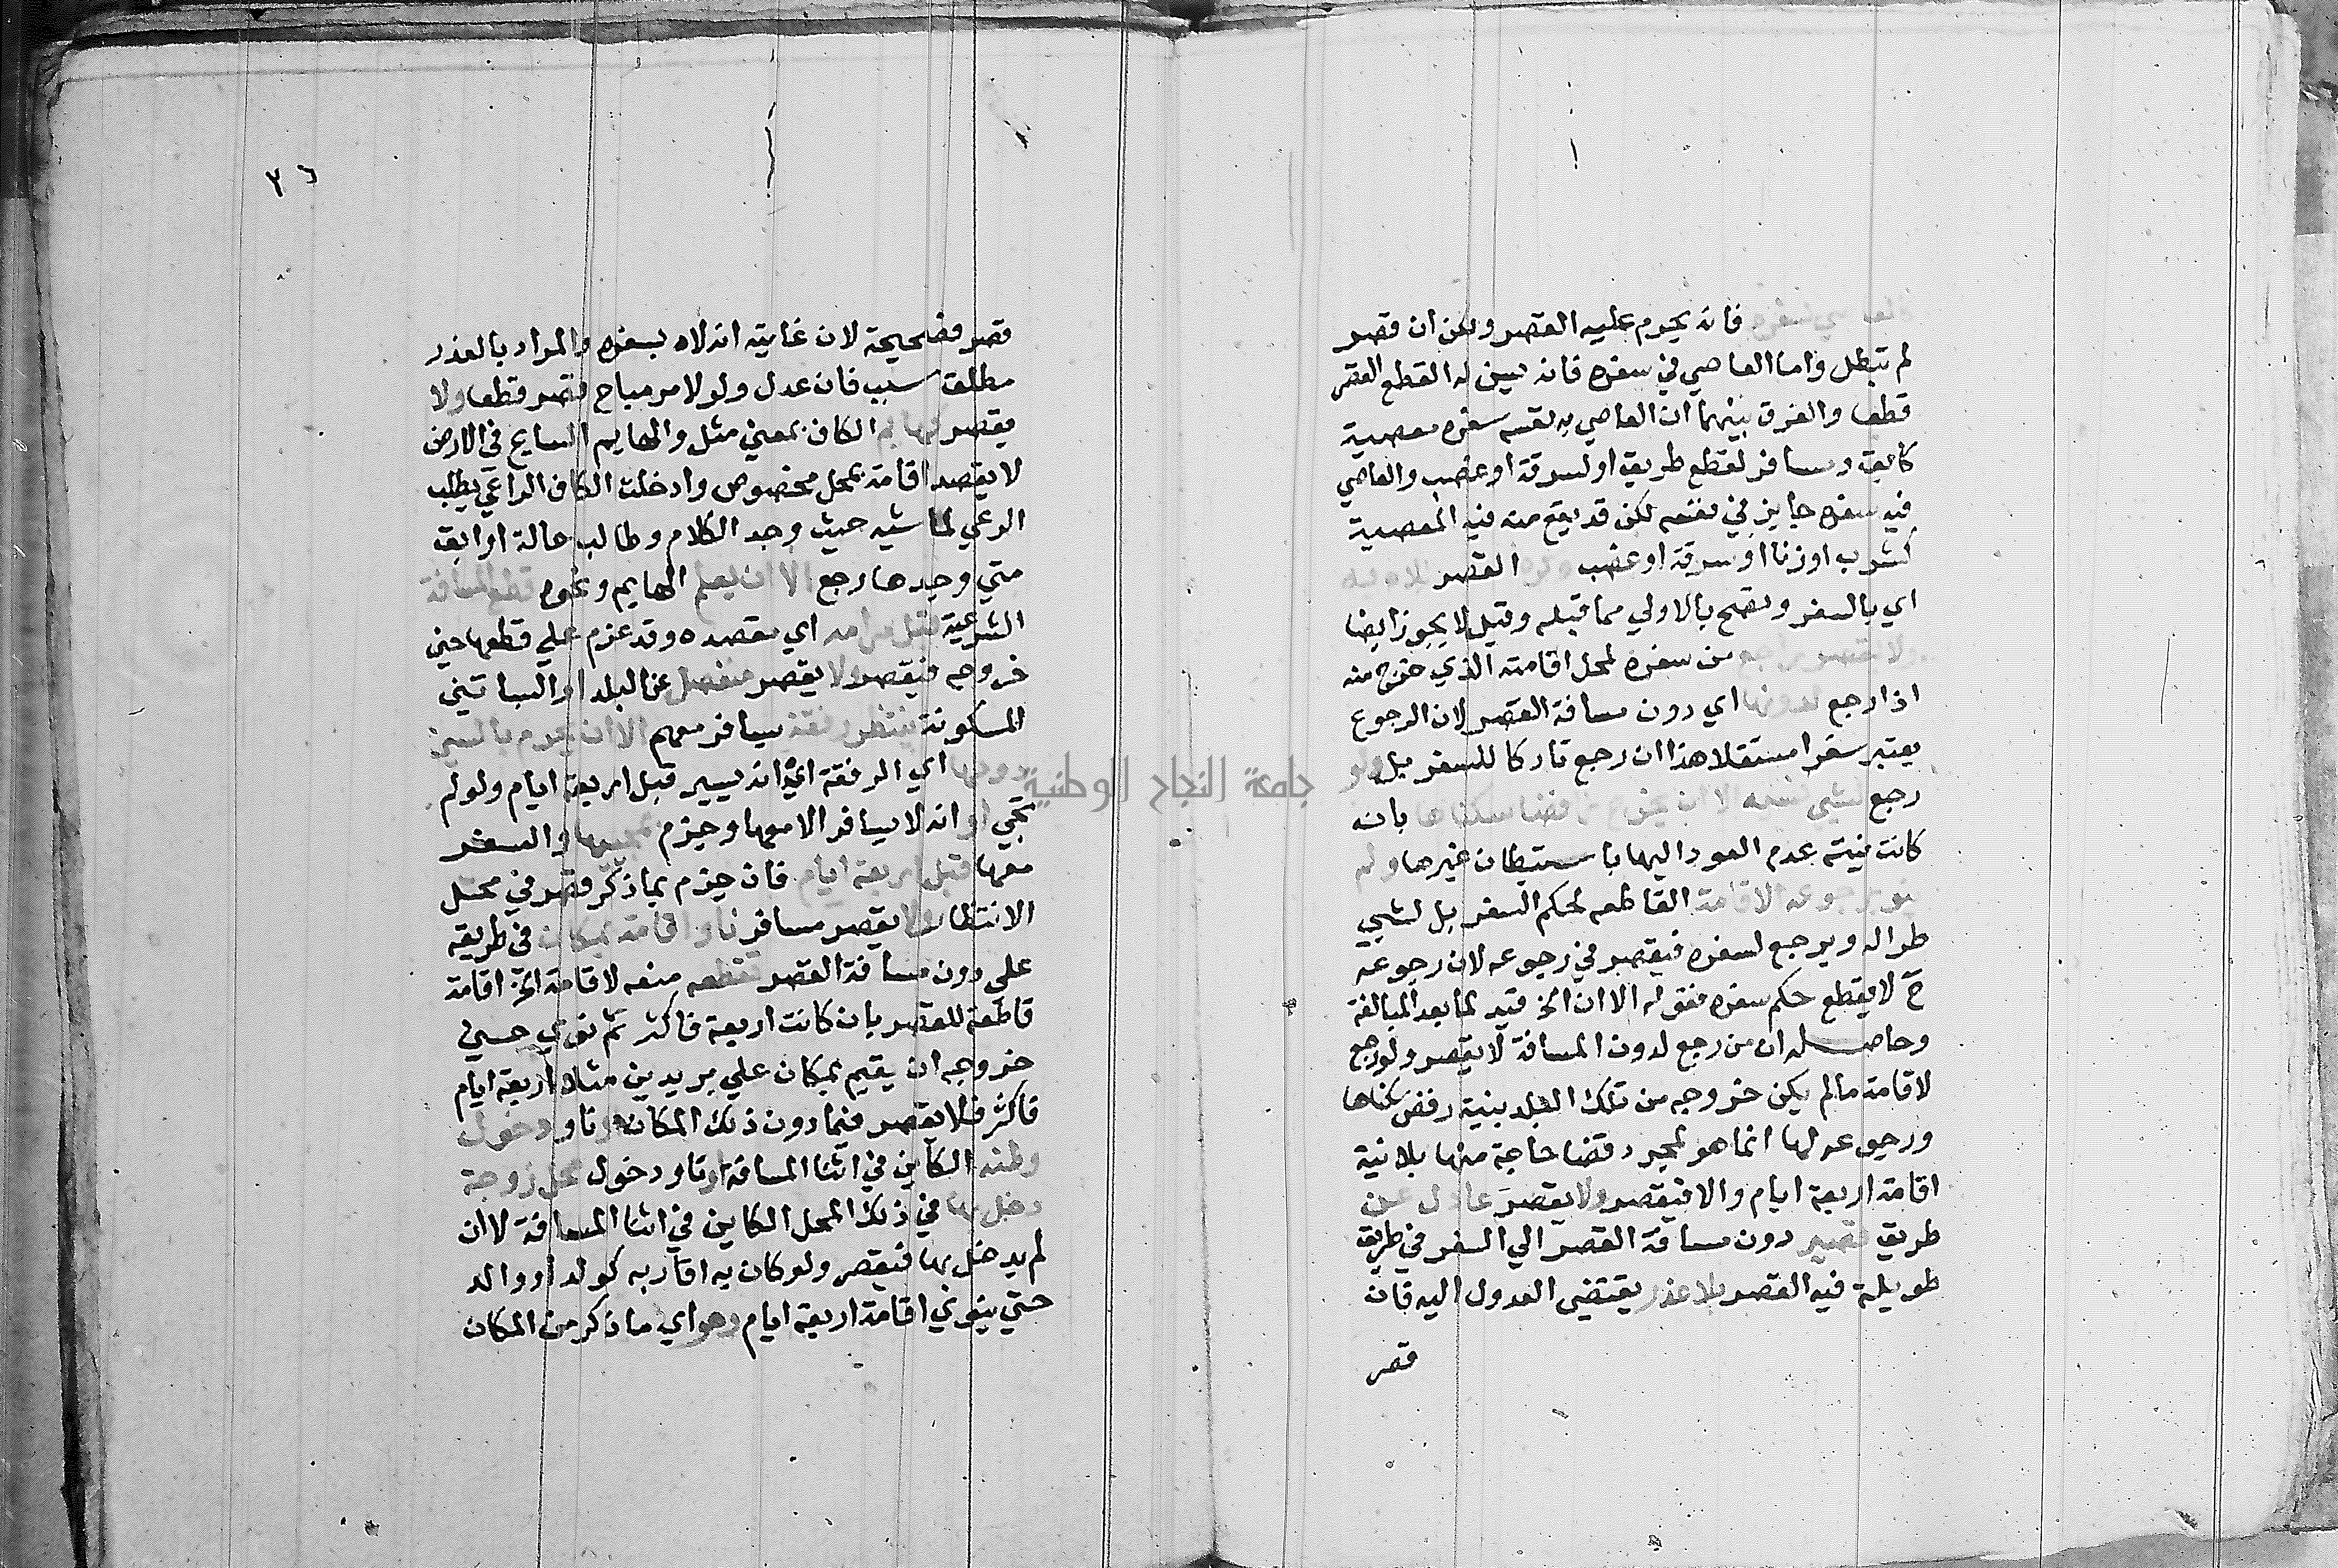 فانه يحرم عليه القصر ولكن ان قصر
لم تبطل واما العاصي في سفره فانه يسن له القطع القصر
قطعا والفرق بينهما ان العاصي به نفسه سفره معصية
كابق ومسافر لقطع طريق او لسرقة او غصب والعاصي
فيه سفره جايز في نفسه لكن قد يقع منه فيه المعصية
كشرب او زنا او سرقة او غصب وكره القصر للاه به
اي بالسفر وتصح بالاولي مما قبله وقيل لا يجوز ايضا
ولا يقصر راجع من سفره لمحل اقامته الذي خرج منه
اذا رجع لدونها اي دون مسافة القصر لان الرجوع
يعتبر سفرا مستقلا هذا ان رجع تاركا للسفر بل ولو
رجع لشي نسيه الا ان يخرج رافضا سكناها بانه
كانت نيته عدم العود اليها باستيطان غيرها ولم
ينو برجوعه الاقامة القاطعه لحكم السفر بل لشيي
طرا له ويرجع لسفره فيقصر في رجوعه لان رجوعه
ح لا يقطع حكم سفره فقوله الا ان الخ قيد لما بعد المبالغة
وحاصله ان من رجع لدون المسافة لا يقصر ولو رجع
لا قامة ما لم يكن خروجه من تلك البلد بنية رفض سكناها
ورجوعه لها انما هو لمجرد قضا حاجة منها بلا نية
اقامة اربعة ايام والا فيقصر ولا يقصر عادل عن
طريق قصير دون مسافة القصر الي السفر في طريق
طويلة فيه القصر بلا عذر يقتضي العدول اليه فان
قصر
٣٦
قصر فصحيحة لان غايته انه لاه بسفره والمراد بالعذر
مطلق سبب فان عدل ولو لامر مباح قصر قطعا ولا
يقصر كهايم الكاف بمعني مثل والهايم السايح في الارض
لا يقصد اقامة بمحل مخصوص وادخلت الكاف الراعي يطلب
الرعي لماشيه حيث وجد الكلا م وطالب ضالة او ابق
متي وجدها رجع الا ان يعلم الهايم ونحوه قطع المسافة
الشرعية قبل مرامه اي مقصده وقد عزم علي قطعها حين
خروجه فيقصر ولا يقصر منفصل عن البلد او البساتين
المسكونة ينتظر رفقة يسافر معهم الا ان يجزم بالسير
دونها اي الرفقة اي انه يسير قبل اربعة ايام ولو لم
تجي او انه لا يسافر الا معها وجزم بمجيها والسفر
معها قبل اربعة ايام فان جزم بما ذكر قصر في محل
الانتظار ولا يقصر مسافر ناو اقامة بمكان في طريقه
علي دون مسافة القصر تقطعه منعه لاقامة اي اقامة
قاطعة للقصر بان كانت اربعة فاكثر ثم نوي حين
خروجه ان يقيم بمكان علي بريدين مثلا اربعة ايام
فاكثر فلا يقصر فيما دون ذلك المكان او ناو دخول
وطنه الكاين في اثنا المسافة او ناو دخول محل زوجة
دخل بها في ذلك المحل الكاين في اثنا المسافة لا ان
لم يدخل بها فيقصر ولو كان به اقاربه كولد او والد
حتي ينوي اقامة اربعة ايام وهو اي ما ذكر من المكان
جامعة النجاح الوطنية